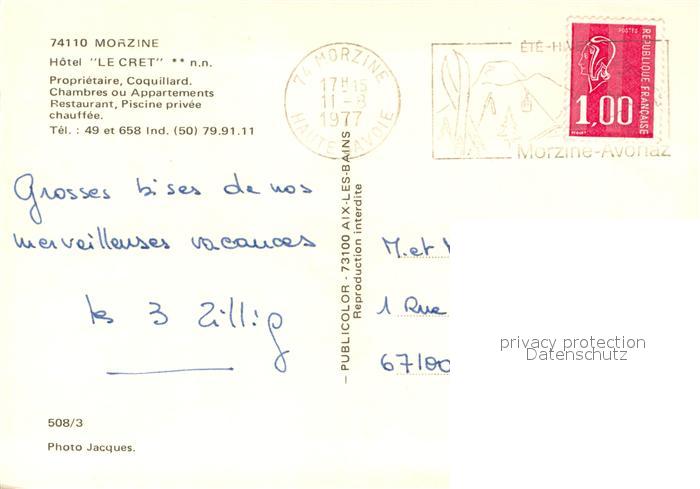 74110 MORZINE
Hôtel "LE CRET" ** n.n.
Propriétaire, Coquillard.
Chambres ou Appartements
Restaurant, Piscine privée
chauffée.
Tél. : 49 et 658 Ind. (50) 79.91.11
74 MORZINE
17H15
11-8
1977
HAUTE-SAVOIE
ÉTÉ-HIVER
Morzine-Avoriaz
POSTES
REPUBLIQUE FRANÇAISE
1,00
Grosses bises de nos
merveilleuses vacances
les 3 Zillig
— PUBLICOLOR - 73100 AIX-LES-BAINS —
Reproduction interdite
M. et
1 Rue
67100
privacy protection
Datenschutz
508/3
Photo Jacques.